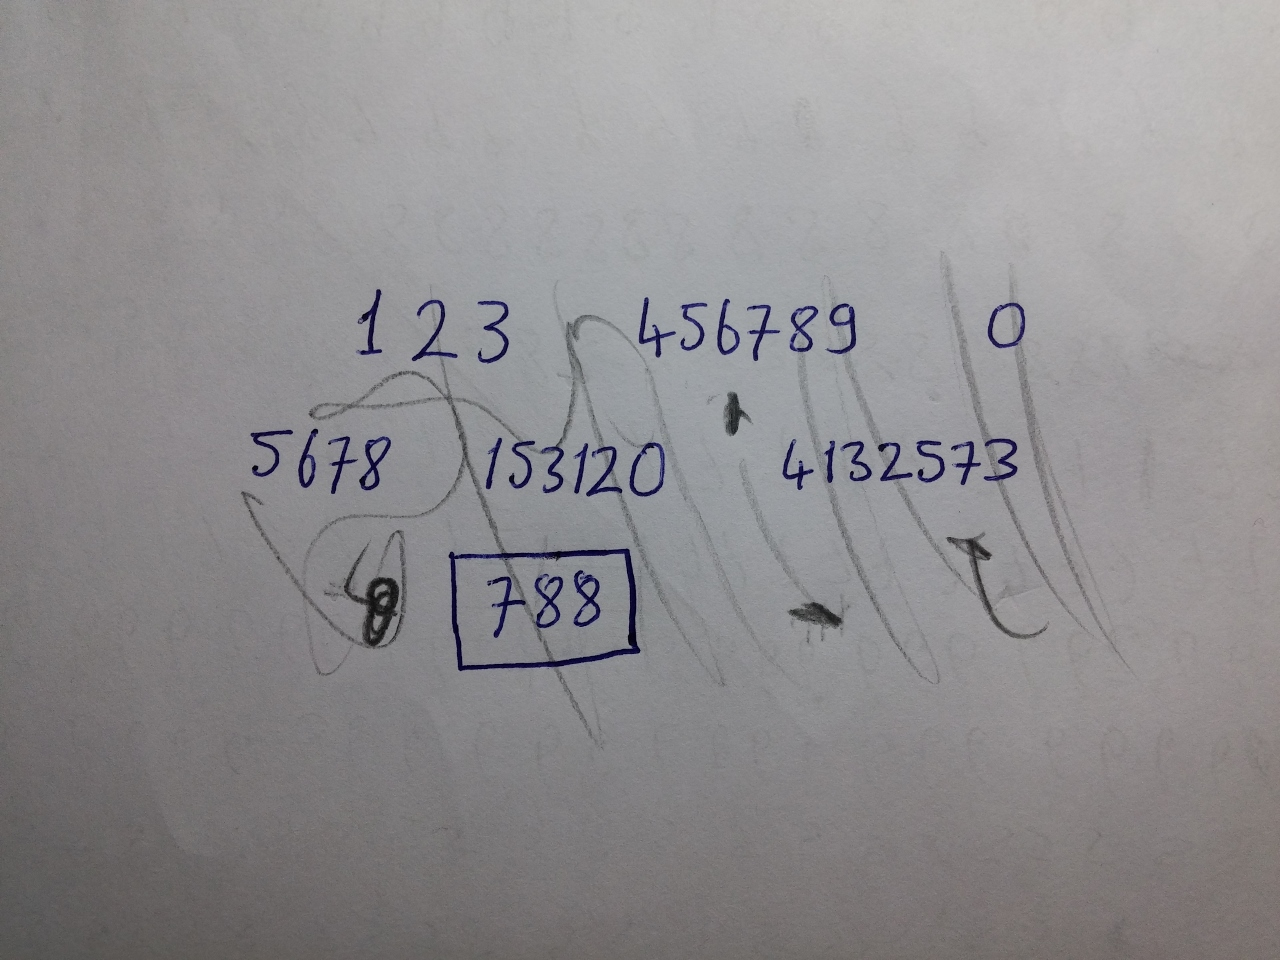 1 2 3 456789 0
5678 153120 4132573
788